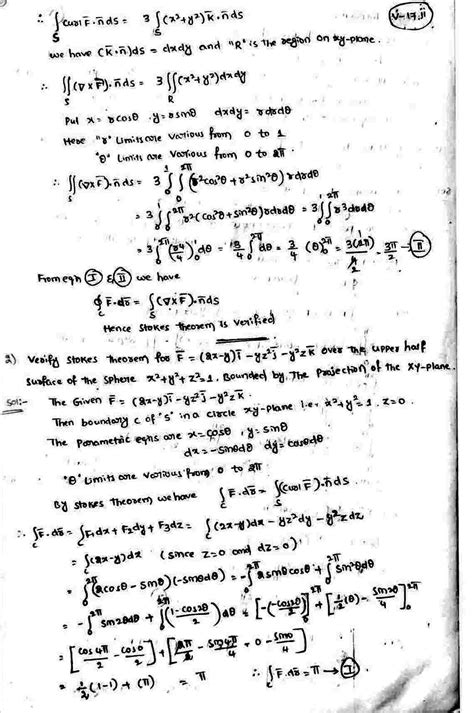 V-17.ii
∴ ∫_S curl F̄.n̄ ds = 3 ∫_S (x²+y²) k̄.n̄ ds
we have (k̄.n̄)ds = dxdy and "R" is the region on xy-plane.
∴ ∬_S (∇×F̄).n̄ ds = 3 ∬_R (x²+y²) dxdy
Put x = rcosθ y = rsinθ dxdy = rdrdθ
Here "r" Limits are various from 0 to 1
"θ" Limits are various from 0 to 2π
∴ ∬_S (∇×F̄).n̄ ds = 3 ∫_0^1 ∫_0^2π (r²cos²θ + r²sin²θ) rdrdθ
= 3 ∫_0^1 ∫_0^2π r²(cos²θ + sin²θ) rdrdθ = 3 ∫_0^1 ∫_0^2π r³ drdθ
= 3 ∫_0^2π (r⁴/4)_0^1 dθ = 3/4 ∫_0^2π dθ = 3/4 (θ)_0^2π = 3(2π)/4 = 3π/2 → II
From eqn I & II we have
∮_C F̄.dr̄ = ∫_S (∇×F̄).n̄ ds
Hence Stokes theorem is verified
2) Verify stokes theorem for F̄ = (2x-y)ī - yz²j̄ - y²z k̄ over the upper half
surface of the sphere x²+y²+z²=1, Bounded by The projection of the xy-plane.
Sol:- The Given F̄ = (2x-y)ī - yz²j̄ - y²z k̄.
Then boundary c of "s" in a circle xy-plane i.e. x²+y²=1, z=0.
The parametric eqns are x=cosθ, y=sinθ
dx = -sinθdθ dy = cosθdθ
"θ" Limits are various from 0 to 2π
By stokes Theorem we have ∫_C F̄.dr̄ = ∫_S (curl F̄).n̄ ds
∴ ∫_C F̄.dr̄ = ∫_C F₁dx + F₂dy + F₃dz = ∫_C (2x-y)dx - yz²dy - y²z dz
= ∫_C (2x-y)dx (since z=0 and dz=0)
= ∫_0^2π (2cosθ - sinθ)(-sinθdθ) = -∫_0^2π 2sinθcosθ + ∫_0^2π sin²θdθ
= -∫_0^2π sin2θdθ + ∫_0^2π (1-cos2θ / 2) dθ = [-(-cos2θ/2)]_0^2π + [1/2(θ) - sin2θ/4]_0^2π
= [cos4π/2 - cos0/2] + [2π/2 - sin4π/4 - 0 - sin0/4]
= 1/2 (1-1) + (π) = π ∴ ∫_C F̄.dr̄ = π → I